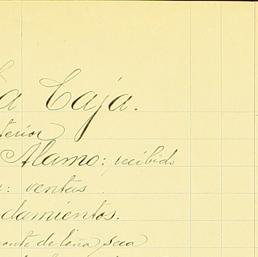 La Caja.
terior
Alamo: recibido
: ventas
damientos.
monte de leña, sea